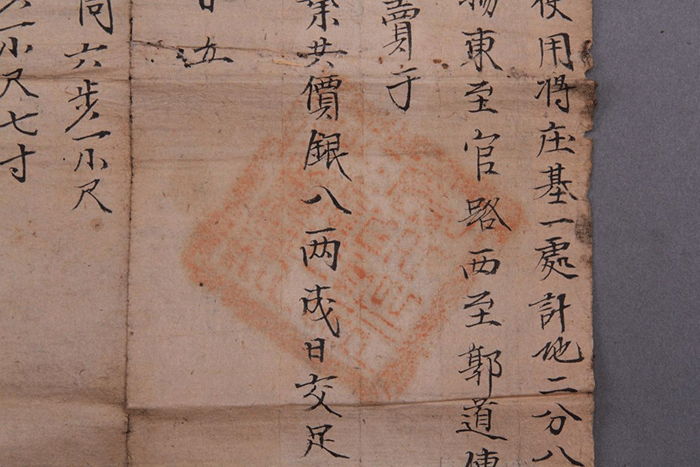 使用将庄基一處計地二分八
東至官路西至鄿道傳
賣于
業共價銀八两成日交足
五
同六步一小尺
一小尺七寸